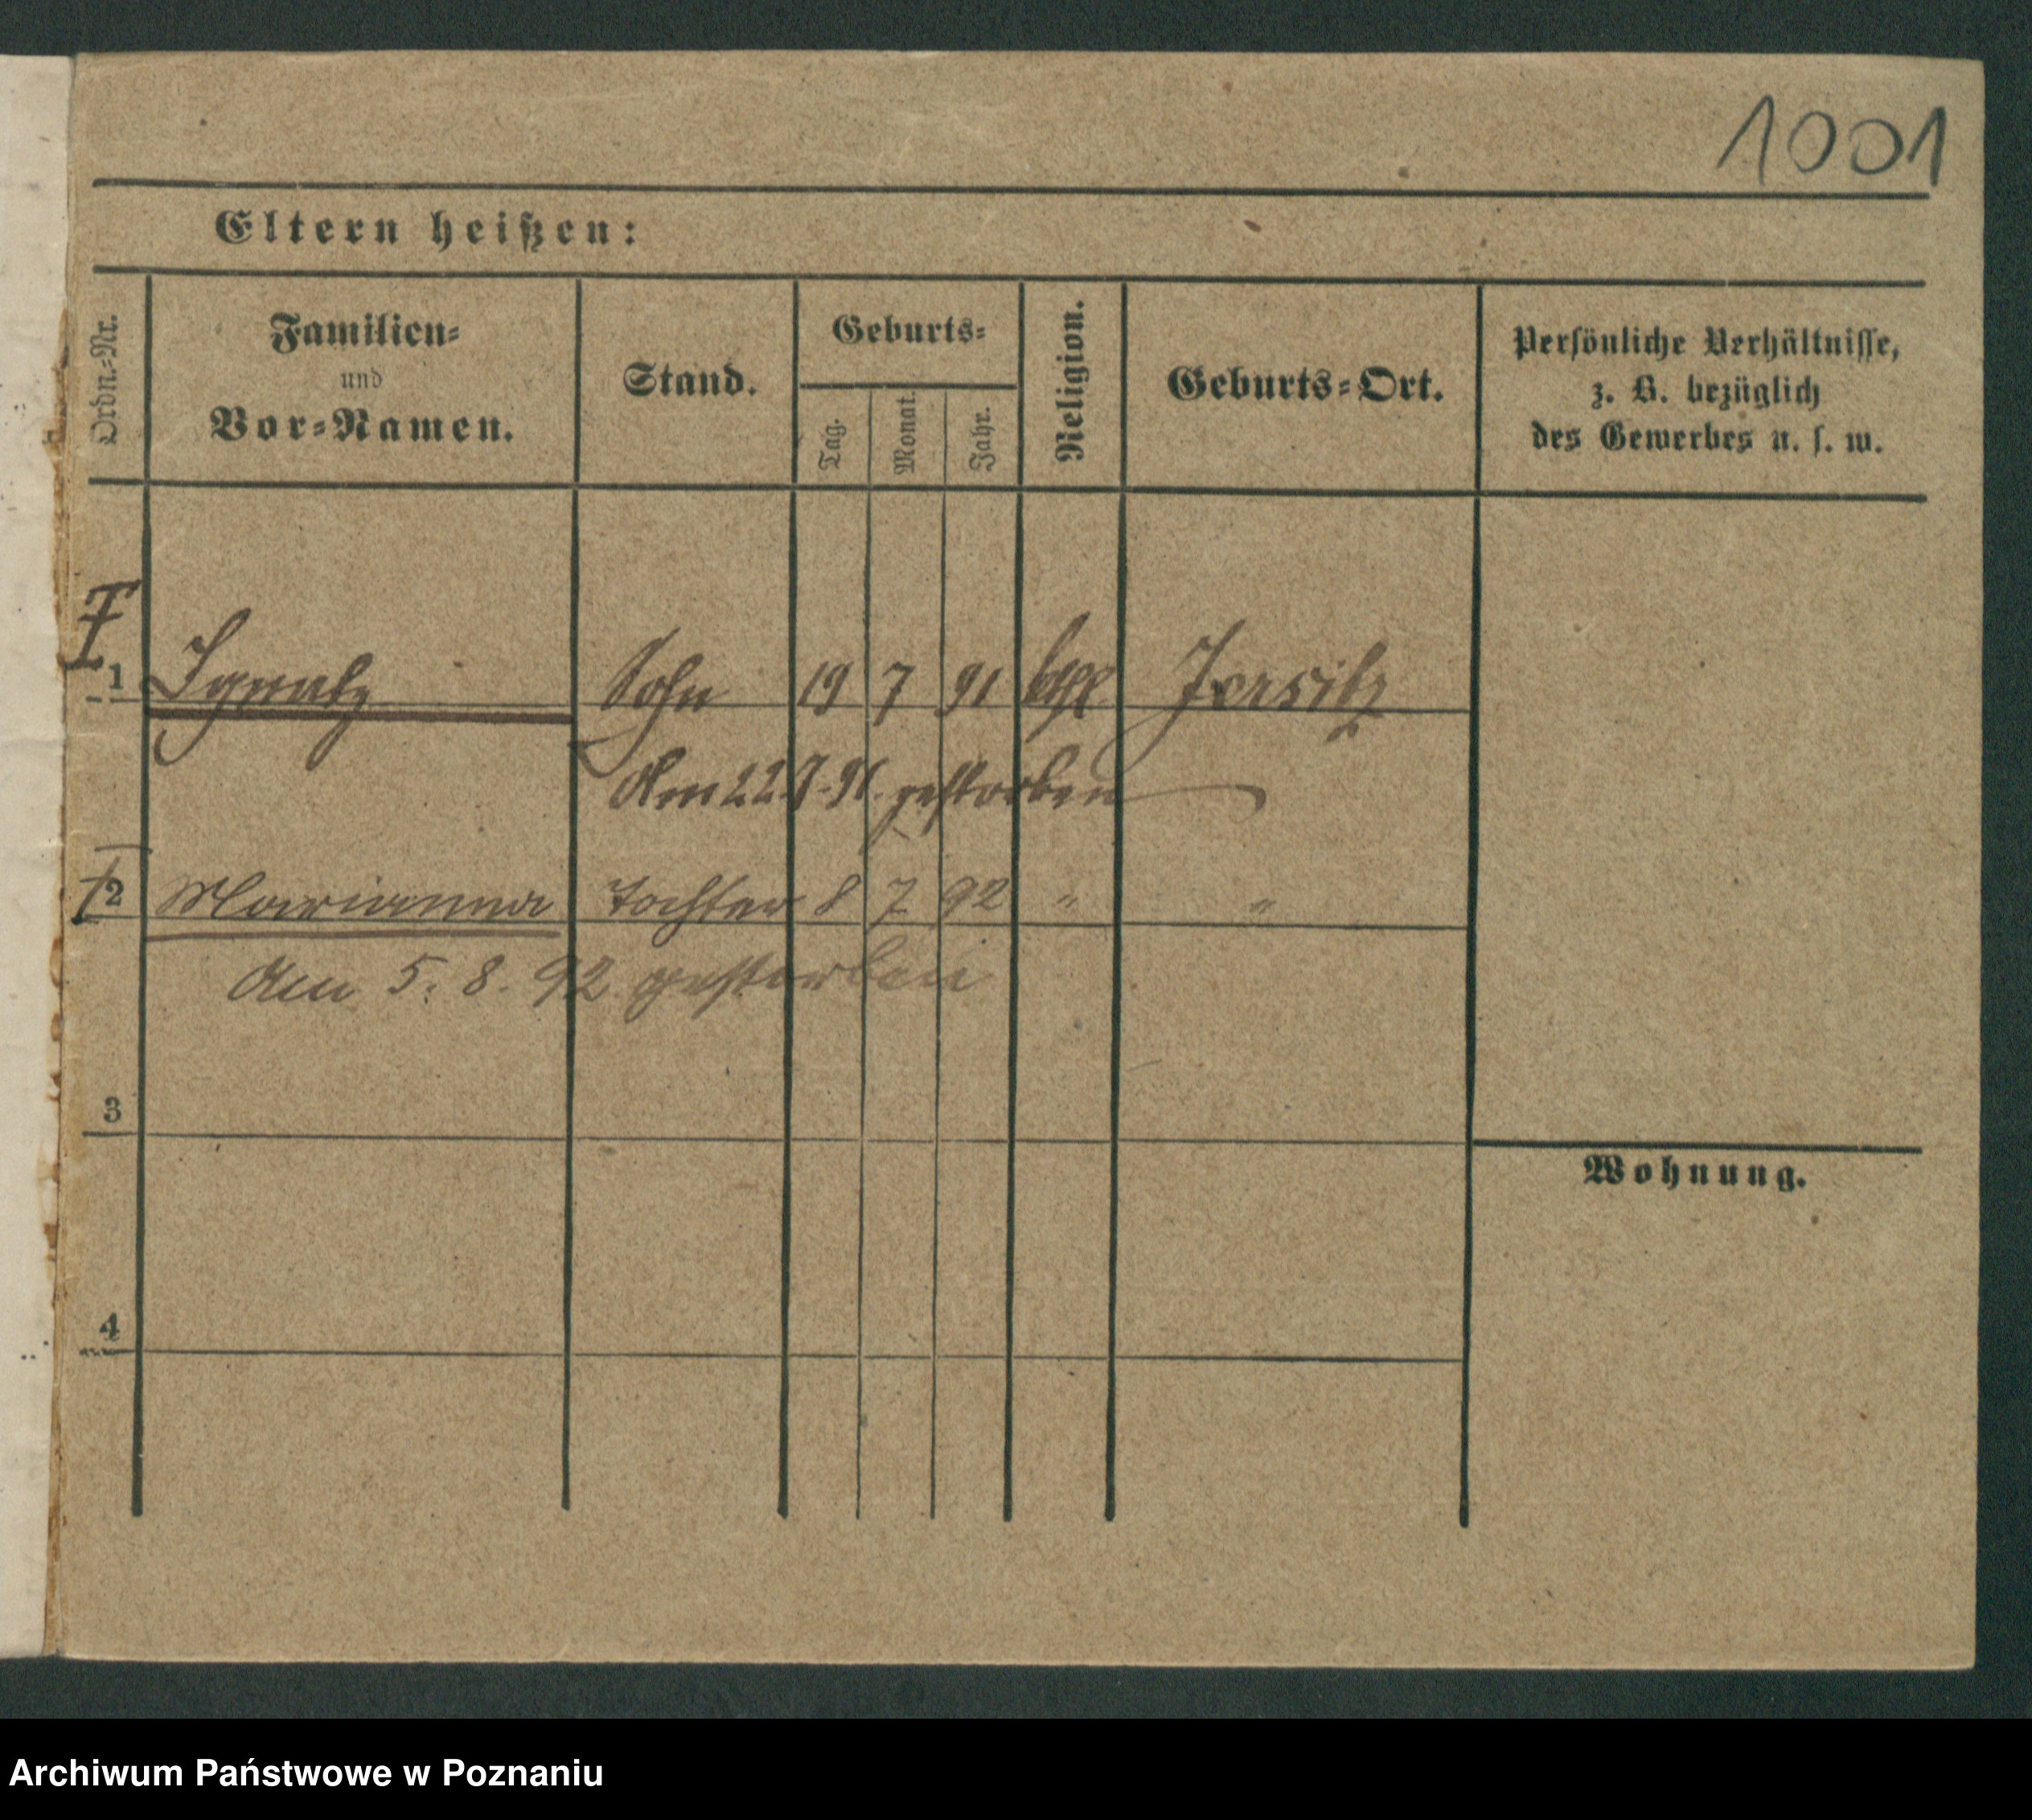 1001
Eltern heißen:
Ordn.=Nr.
Familien=
und
Vor=Namen.
Stand.
Geburts=
Tag.
Monat.
Jahr.
Religion.
Geburts=Ort.
Persönliche Verhältnisse,
z. B. bezüglich
des Gewerbes u. s. w.
1 Ignatz Sohn 19 7 91 kthl. Jersitz
Am 22.7.91. gestorben
2 Marianna Tochter 8 7 92 " "
Am 5. 8. 92 gestorben
3
Wohnung.
4
Archiwum Państwowe w Poznaniu